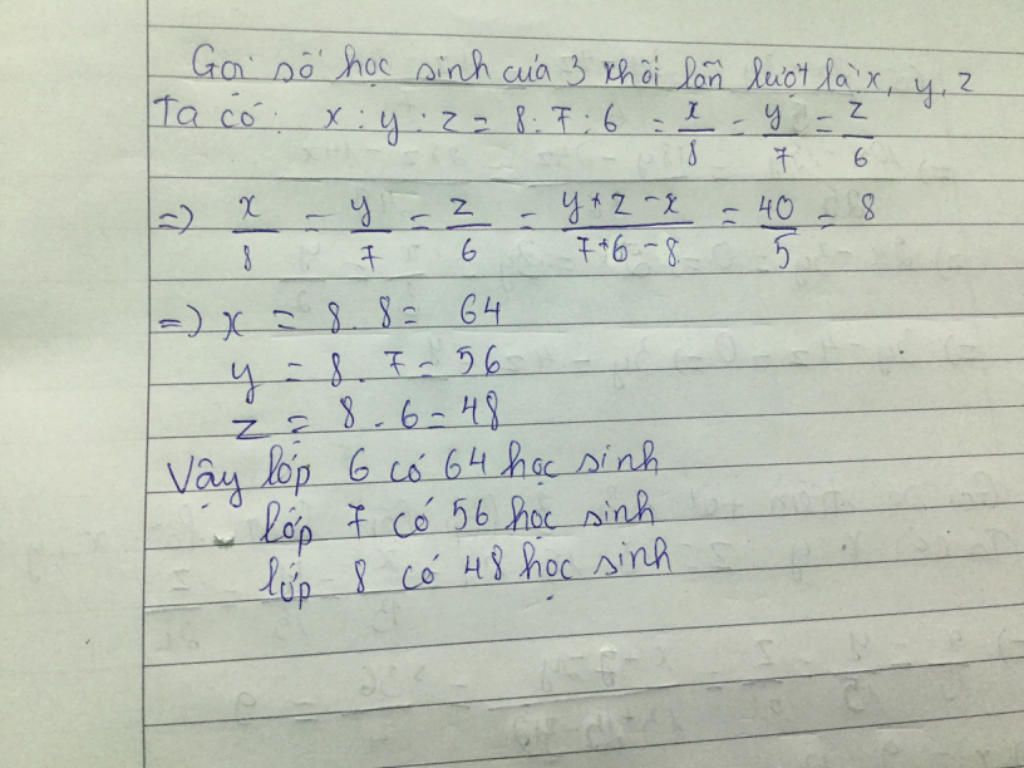 Gọi số học sinh của 3 khối lần lượt là x, y, z
Ta có: x : y : z = 8 : 7 : 6 = x/8 = y/7 = z/6
=> x/8 = y/7 = z/6 = (y + z - x)/(7 + 6 - 8) = 40/5 = 8
=> x = 8 . 8 = 64
y = 8 . 7 = 56
z = 8 . 6 = 48
Vậy lớp 6 có 64 học sinh
lớp 7 có 56 học sinh
lớp 8 có 48 học sinh